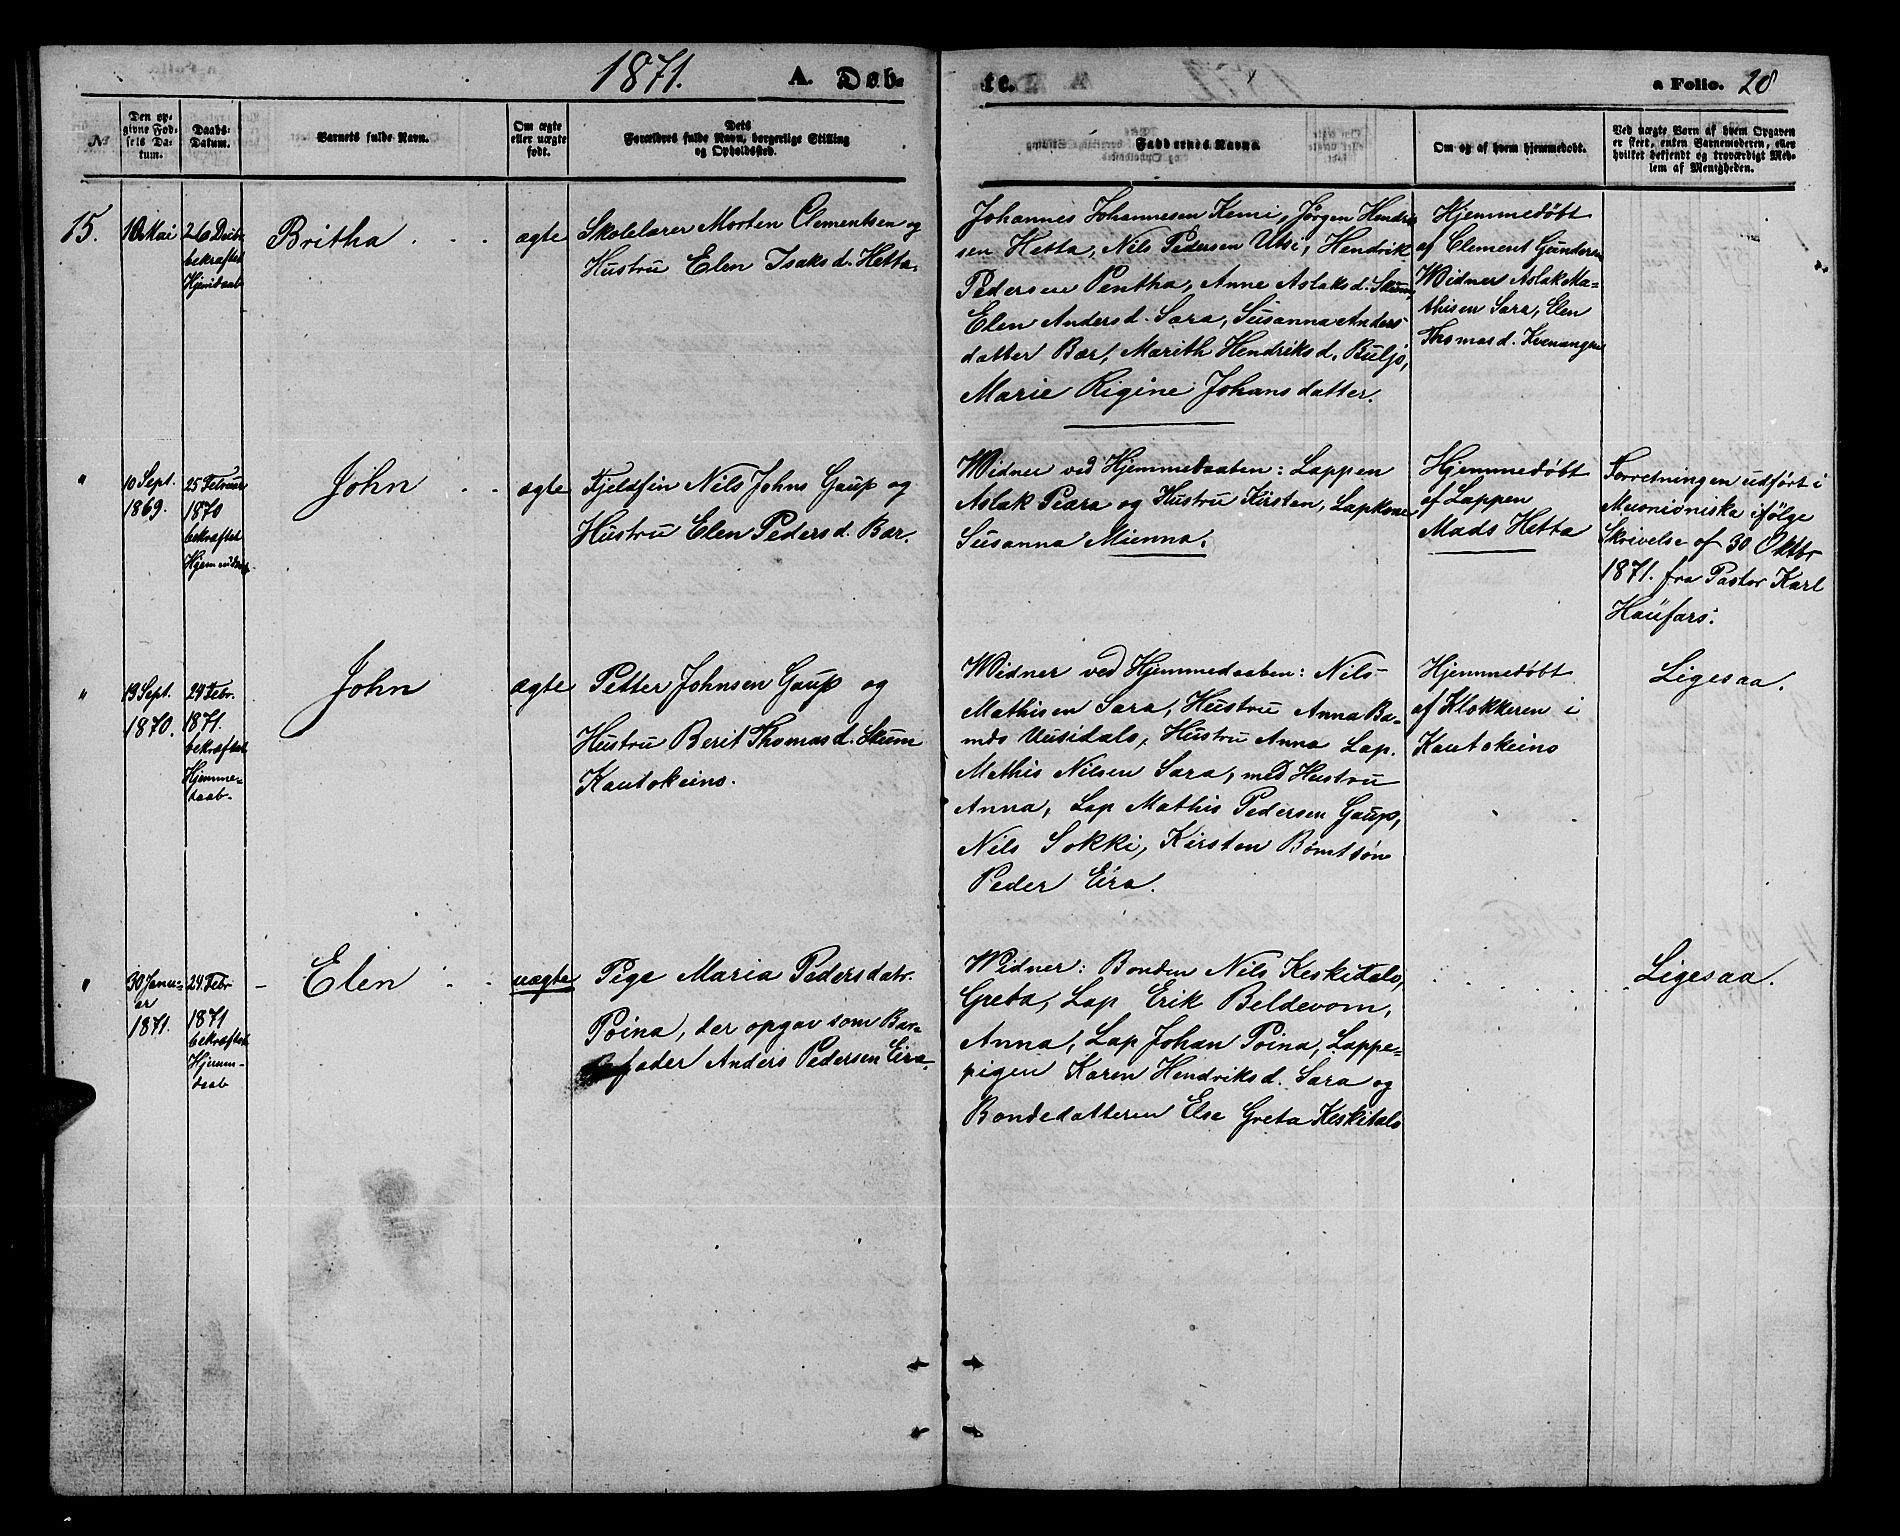 1871. A. Døb- te. a Folio. 28
№
Den op-
givne Fød-
sels Da-
tum.
Daabs-
Datum.
Barnets fulde Navn.
Om ægte
eller uægte
født.
Dets
Forældres fulde Navn, borgerlige Stilling
og Opholdssted.
Faddernes Navne.
Om og af hvem hjemmedøbt.
Ved uægte Børn af hvem Opgaven
er skeet, enten Barnemoderen, eller
hvilket bekjendt og troværdigt Med-
lem af Menigheden.
15.
10 Mai
26 Decbr.
bekræftet
Hjemdaab
Britha
ægte
Skolelærer Morten Clementsen og
Hustru Elen Isaksd. Hetta.
Johannes Johannesen Kemi, Jørgen Hendrik
sen Hetta, Nils Pedersen Utsi, Hendrik
Pedersen Pentha, Anne Aslaksd. Skum,
Elen Andersd. Sara, Susanna Anders
datter Bær, Marith Hendriksd. Buljo,
Marie Rigine Johansdatter.
Hjemmedøbt
af Clement Gundersen
Widner Aslak Ma-
thisen Sara, Elen
Thomasd. Kvenangen
"
10 Sept.
1869.
25 Februar
1870
bekræftet
John
ægte
Fjeldfin Nils Johns Gaup og
Hustru Elen Pedersd. Bær.
Widner ved Hjemmedaaben: Lappen
Aslak Peara og Hustru Kirsten, Lapkone
Susanna Mienna.
Hjemmedøbt
af Lappen
Mads Hetta
Forretningen udført i
Muonioniska ifølge
Skrivelse af 30 Oktbr
1871. fra Pastor Karl
"
19 Sept.
1870.
24 Febr.
1871.
bekræftet
Hjemme-
daab.
John
ægte
Petter Johnsen Gaup og
Hustru Berit Thomasd. Skum
Kautokeino.
Widner ved Hjemmedaaben: Nils
Mathisen Sara, Hustru Anna Ba-
Hustru Anna Lap.
Mathis Nilsen Sara, med Hustru
Anna, Lap Mathis Pedersen Gaup,
Nils Sokki, Kirsten
Peder Eira.
Hjemmedøbt
af Klokkeren i
Kautokeino
Ligesaa.
"
30 Janu-
ar
1871.
24 Febr
1871
bekræftet
Hjemm-
daab
Elen
uægte
Pige Maria Pedersdatr.
Poina, der opgav som Bar-
fader Anders Pedersen Eira.
Widner: Bonden Nils Keskitalo,
Greta, Lap Erik Beldevom,
Anna, Lap Johan Poina, Lappe-
pigen Karen Hendriksd. Sara og
Bondedatteren Else Greta Keskitalo
Ligesaa.